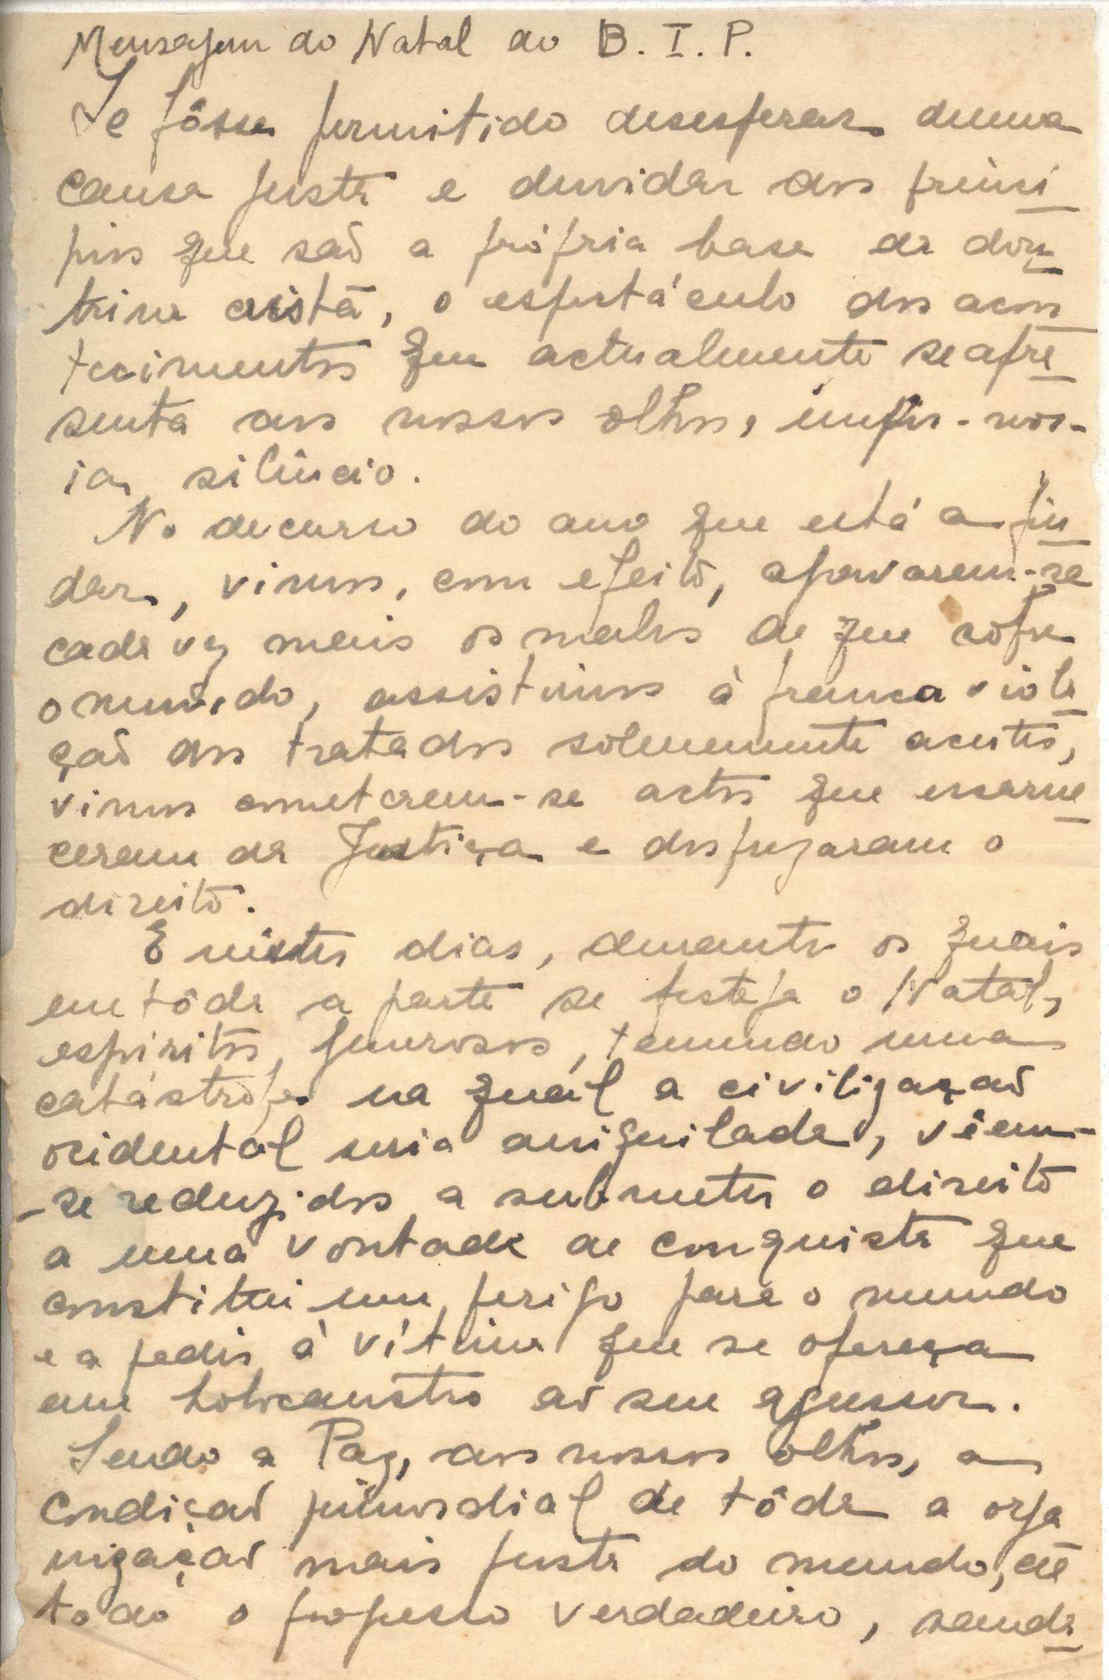 Mensagem do Natal do B. I. P.
Se fôsse permitido desesperar duma
causa justa e duvidar dos princí
pios que são a própria base da dou
trina cristã, o espectáculo dos acon
tecimentos que actualmente se apre
senta aos nossos olhos, impôr-nos-
ia silêncio.
No decurso do ano que está a fin
dar, vimos, com efeito, agravarem-se
cada vez mais os males de que sofre
o mundo, assistimos à franca viola
ção dos tratados solenemente aceites,
vimos cometerem-se actos que escarne
ceram da Justiça e desprezaram o
direito.
E nêstes dias, durante os quais
em tôda a parte se festeja o Natal,
espíritos generosos, temendo uma
catástrofe na quál a civilização
ocidental seria aniquilada, vêem-
-se reduzidos a submeter o direito
a uma vontade de conquista que
constitui um perigo para o mundo
e a pedir à vítima que se ofereça
em holocaustro ao seu agressor.
Sendo a Paz, aos nossos olhos, a
condição primordial de tôda a orga
nização mais justa do mundo, de
todo o progresso verdadeiro, sauda